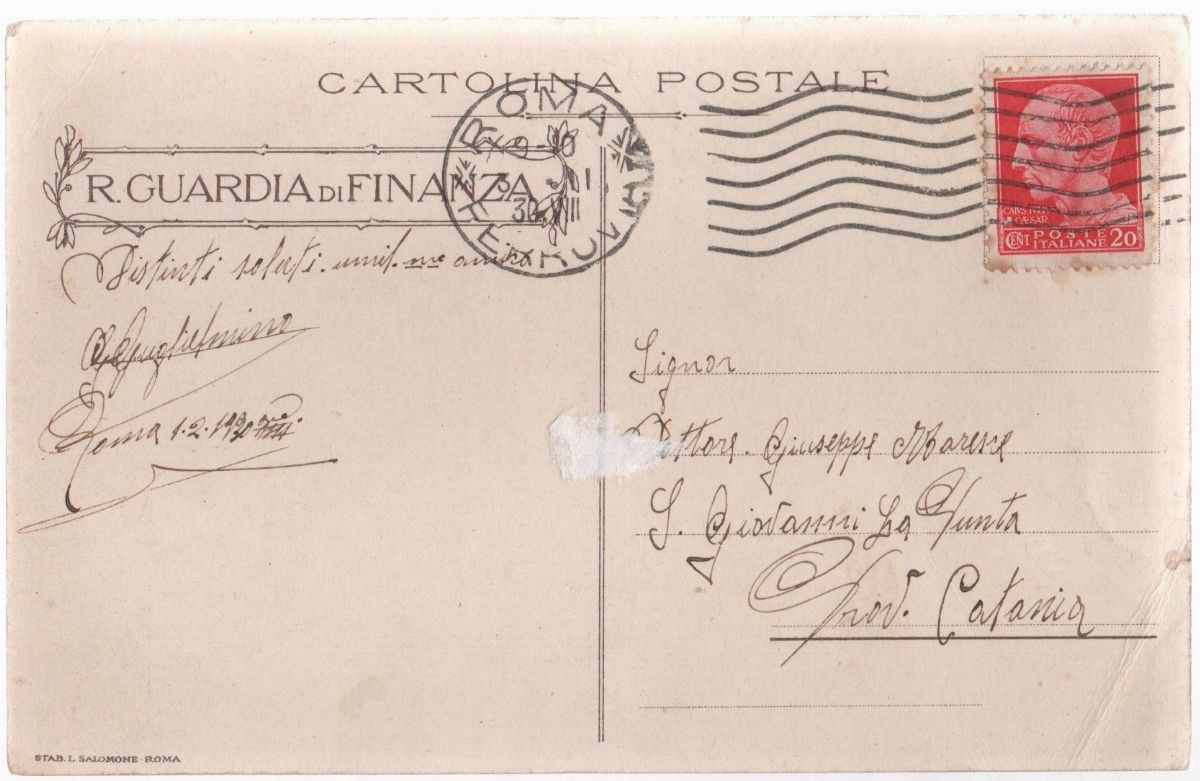 CARTOLINA POSTALE
R. GUARDIA DI FINANZA
ROMA FERROVIA
9-10
CAIVS IVLIVS
CAESAR
CENT POSTE ITALIANE 20
Distinti saluti
Guglielmino
Roma 1.2.1930
Signor
Dottore Giuseppe
S. Giovanni La Punta
Prov. Catania
STAB. L. SALOMONE - ROMA